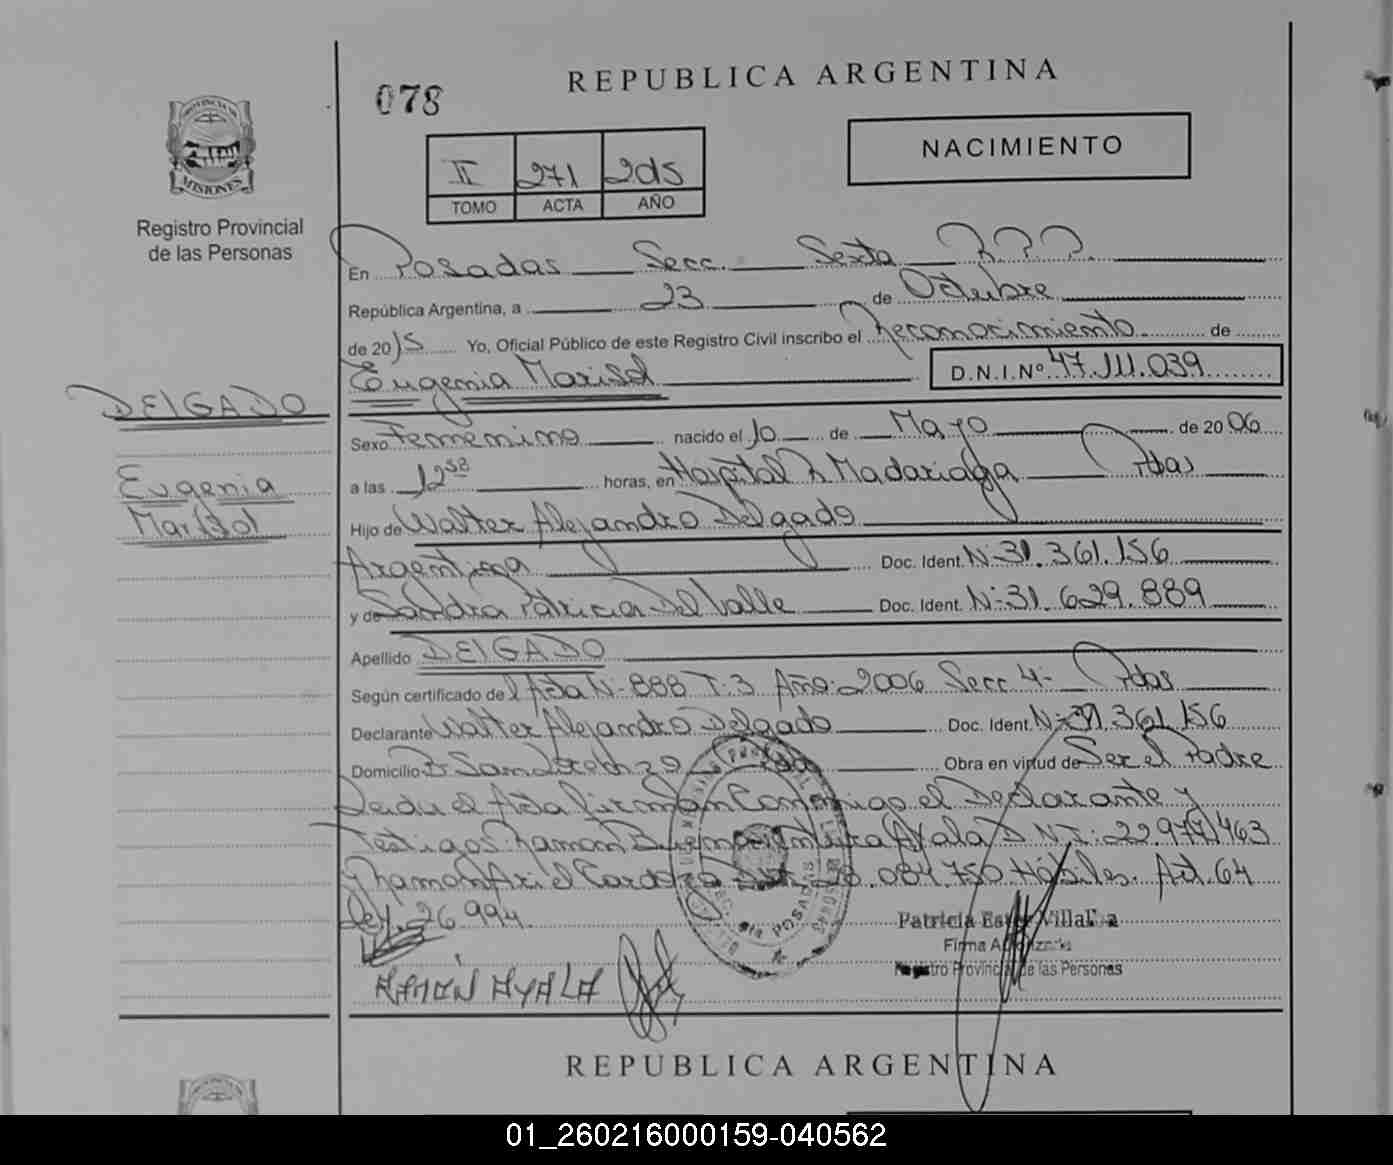 078
REPUBLICA ARGENTINA
NACIMIENTO
II 271 2015
TOMO ACTA AÑO
PROVINCIA DE
MISIONES
Registro Provincial
de las Personas
En Posadas Secc. Sexta R.P.P.
República Argentina, a 23 de Octubre
de 2015 Yo, Oficial Público de este Registro Civil inscribo el Reconocimiento de
Eugenia Marisol D.N.I.Nº 47.111.039
DELGADO
Eugenia
Marisol
Sexo Femenino nacido el 10 de Mayo de 2006
a las 12 58 horas, en Hospital R. Madariaga Pdas
Hijo de Walter Alejandro Delgado
Argentina Doc. Ident. Nº 31.361.156
y de Sandra Patricia Del Valle Doc. Ident. Nº 31.629.889
Apellido DELGADO
Según certificado de l Acta Nº 888 T: 3 Año: 2006 Secc 4º Pdas
Declarante Walter Alejandro Delgado Doc. Ident. Nº 31.361.156
Domicilio Bº Obra en virtud de Ser el Padre
Leida el Acta firman Conmigo el Declarante y
Testigos: Ramon Buenaventura Ayala D.N.I: 22.977.463
y Ramon Ariel Cardozo 084.750 Hábiles. Art. 64
Ley. 26.994.
Patricia Ester
Firma Autorizada
Registro Provincial de las Personas
RAMÓN AYALA
REPUBLICA ARGENTINA
01_260216000159-040562